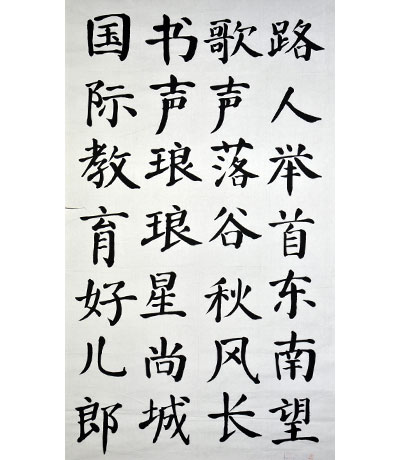 路人举首东南望
歌声落谷秋风长
书声琅琅星尚城
国际教育好儿郎